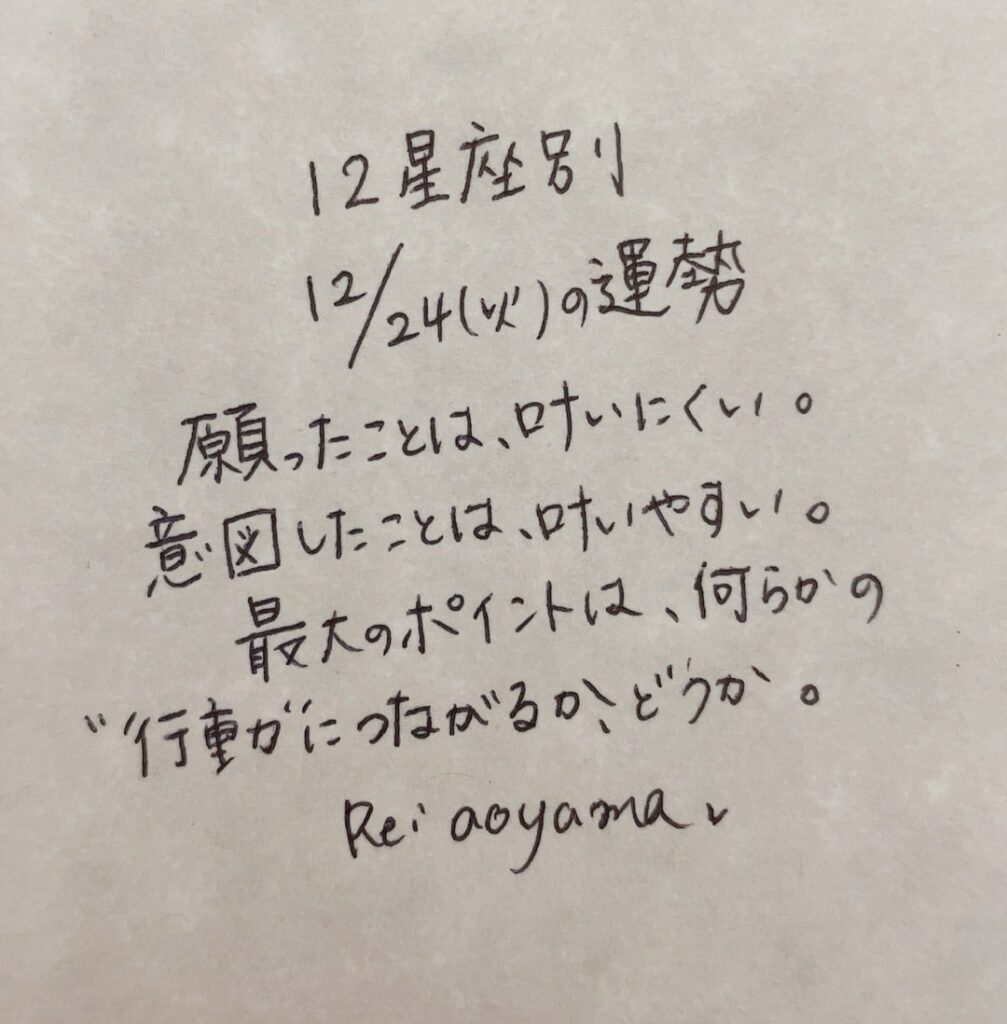 12星座別
12/24(火)の運勢
願ったことは、叶いにくい。
意図したことは、叶いやすい。
最大のポイントは、何らかの
"行動"につながるか、どうか。
Rei aoyama